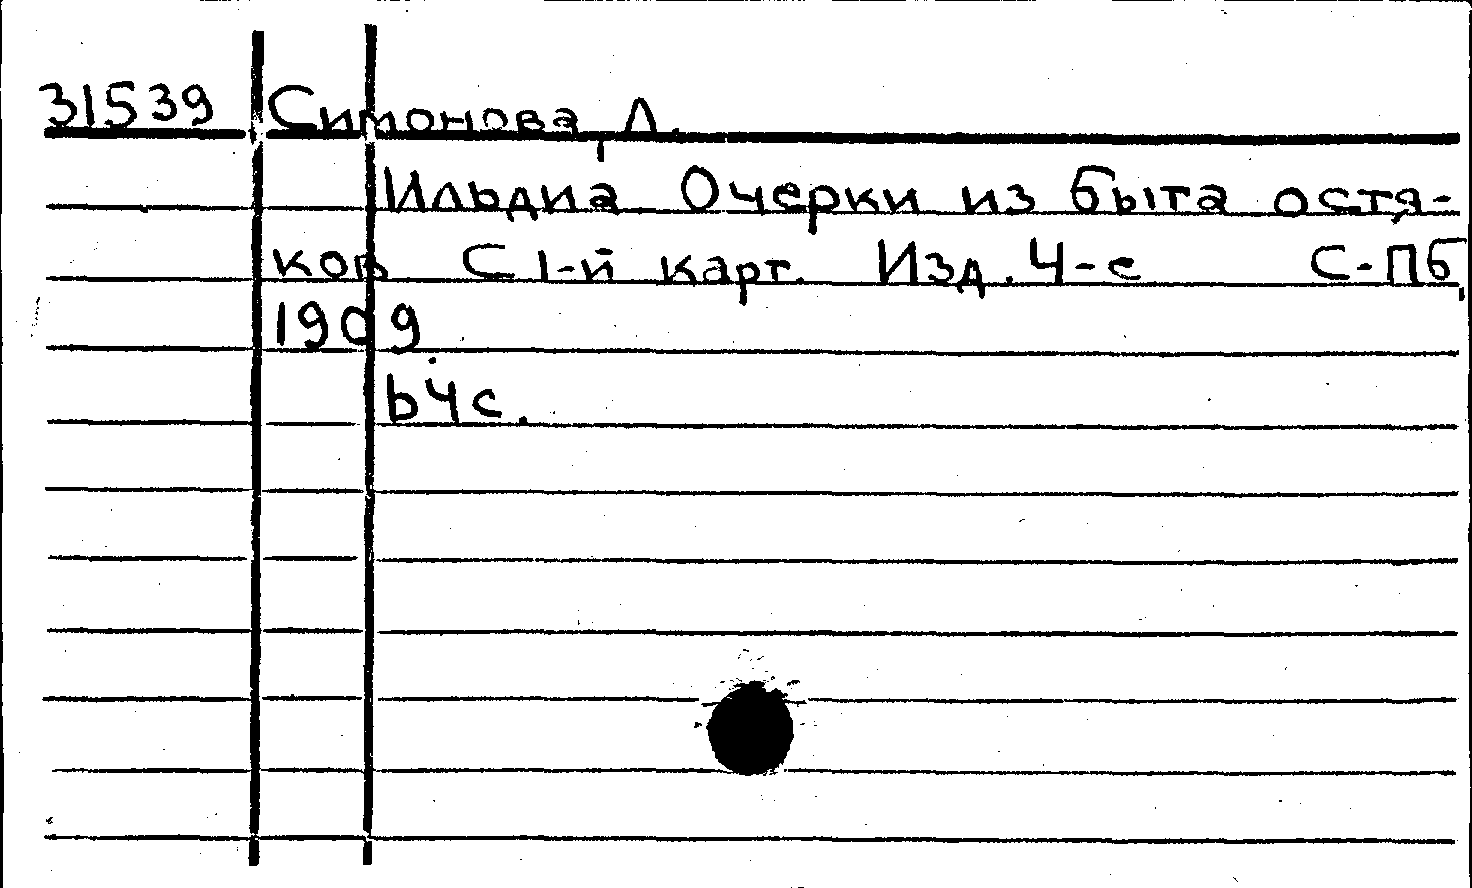 31539 Симонова, Л.
Ильдиа Очерки из быта остя-
ков С 1-й карт. Изд. 4-е С-Пб,
1909.
64 с.